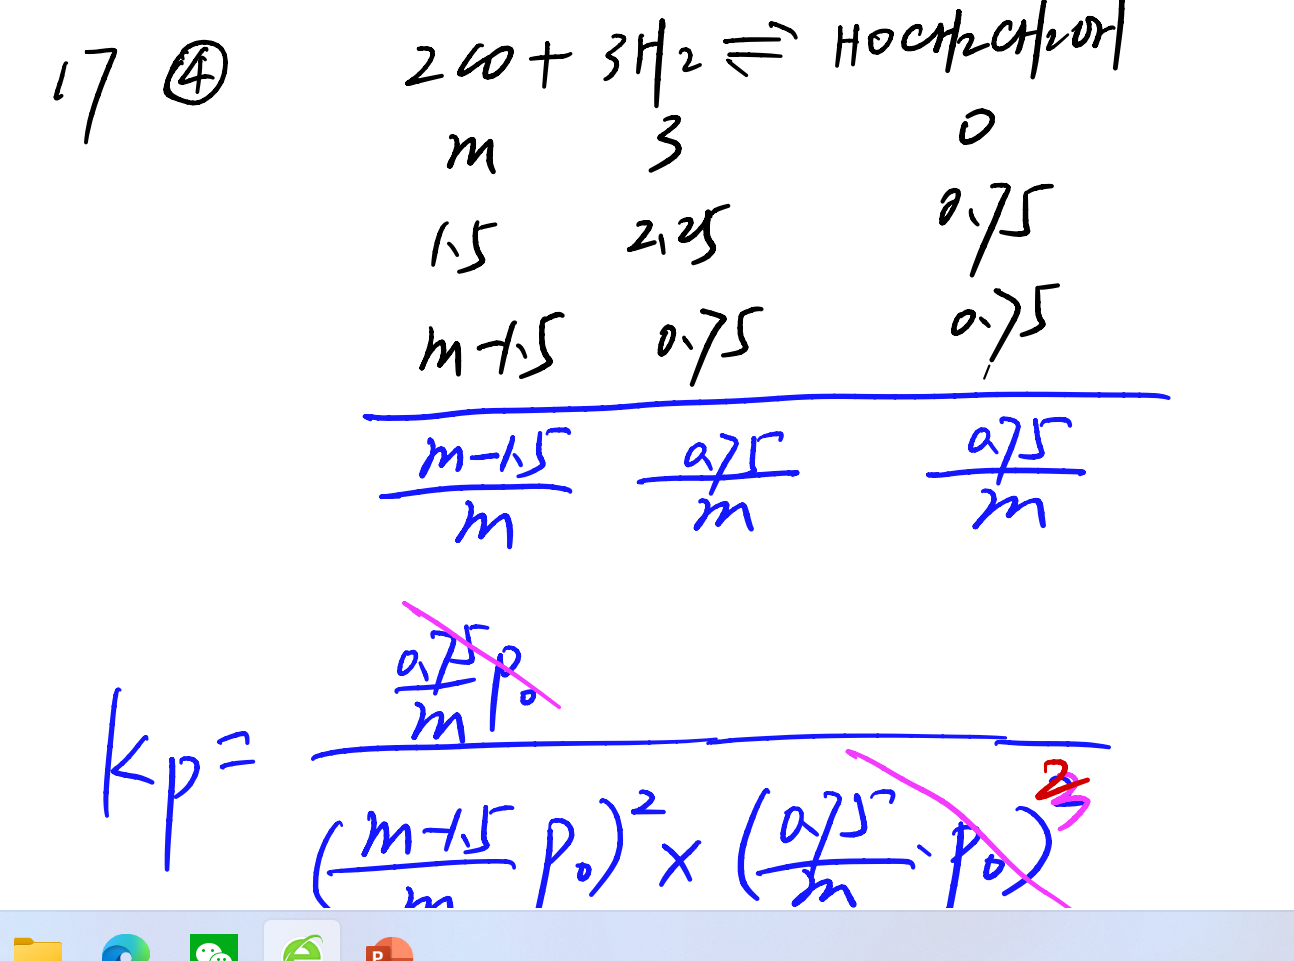 17 ④ 2CO + 3H2 ⇌ HOCH2CH2OH
m 3 0
1.5 2.25 0.75
m-1.5 0.75 0.75
m-1.5 0.75 0.75
m m m
0.75 P0
m
Kp=
(m-1.5 P0)2 × (0.75 · P0)2
m m